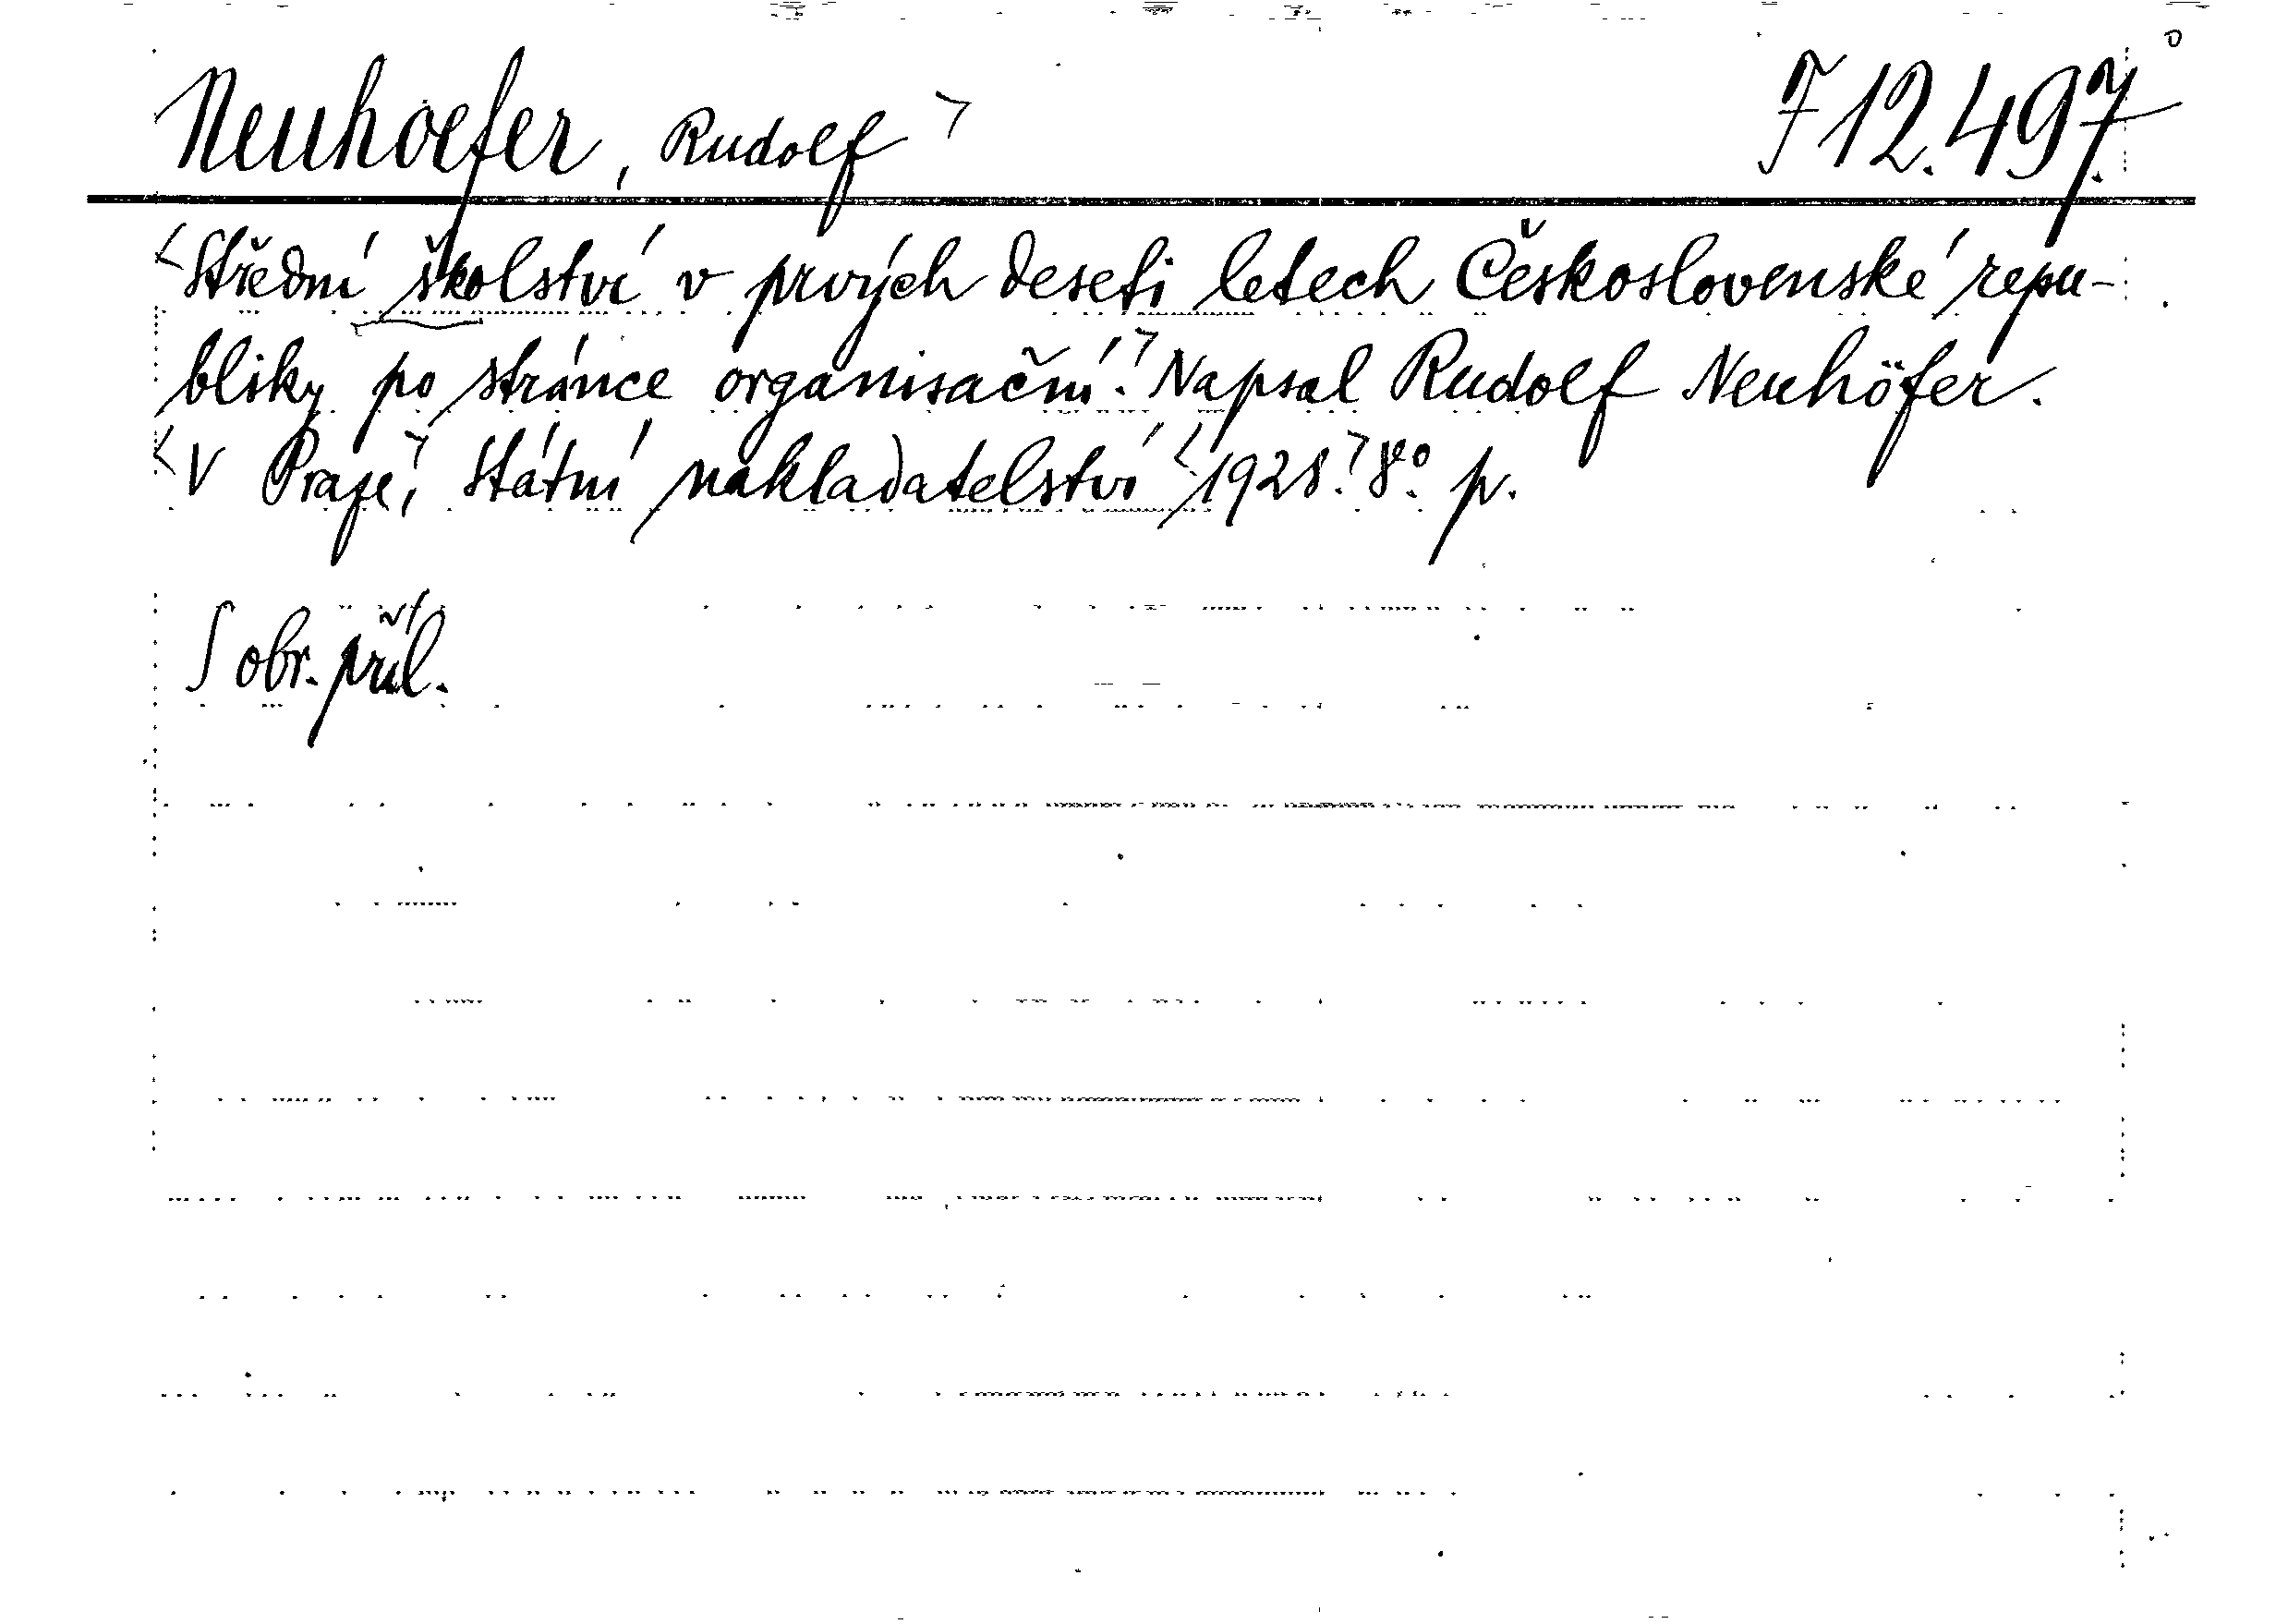 Neuhoefer, Rudolf ꓶ F 12.497
<Střední školství v prvých deseti letech Československé repu-
bliky po stránce organisační.ꓶ Napsal Rudolf Neuhöfer.
<V Praze,ꓶ Státní nakladatelství <1928.ꓶ 8º. p.
S obr. příl.